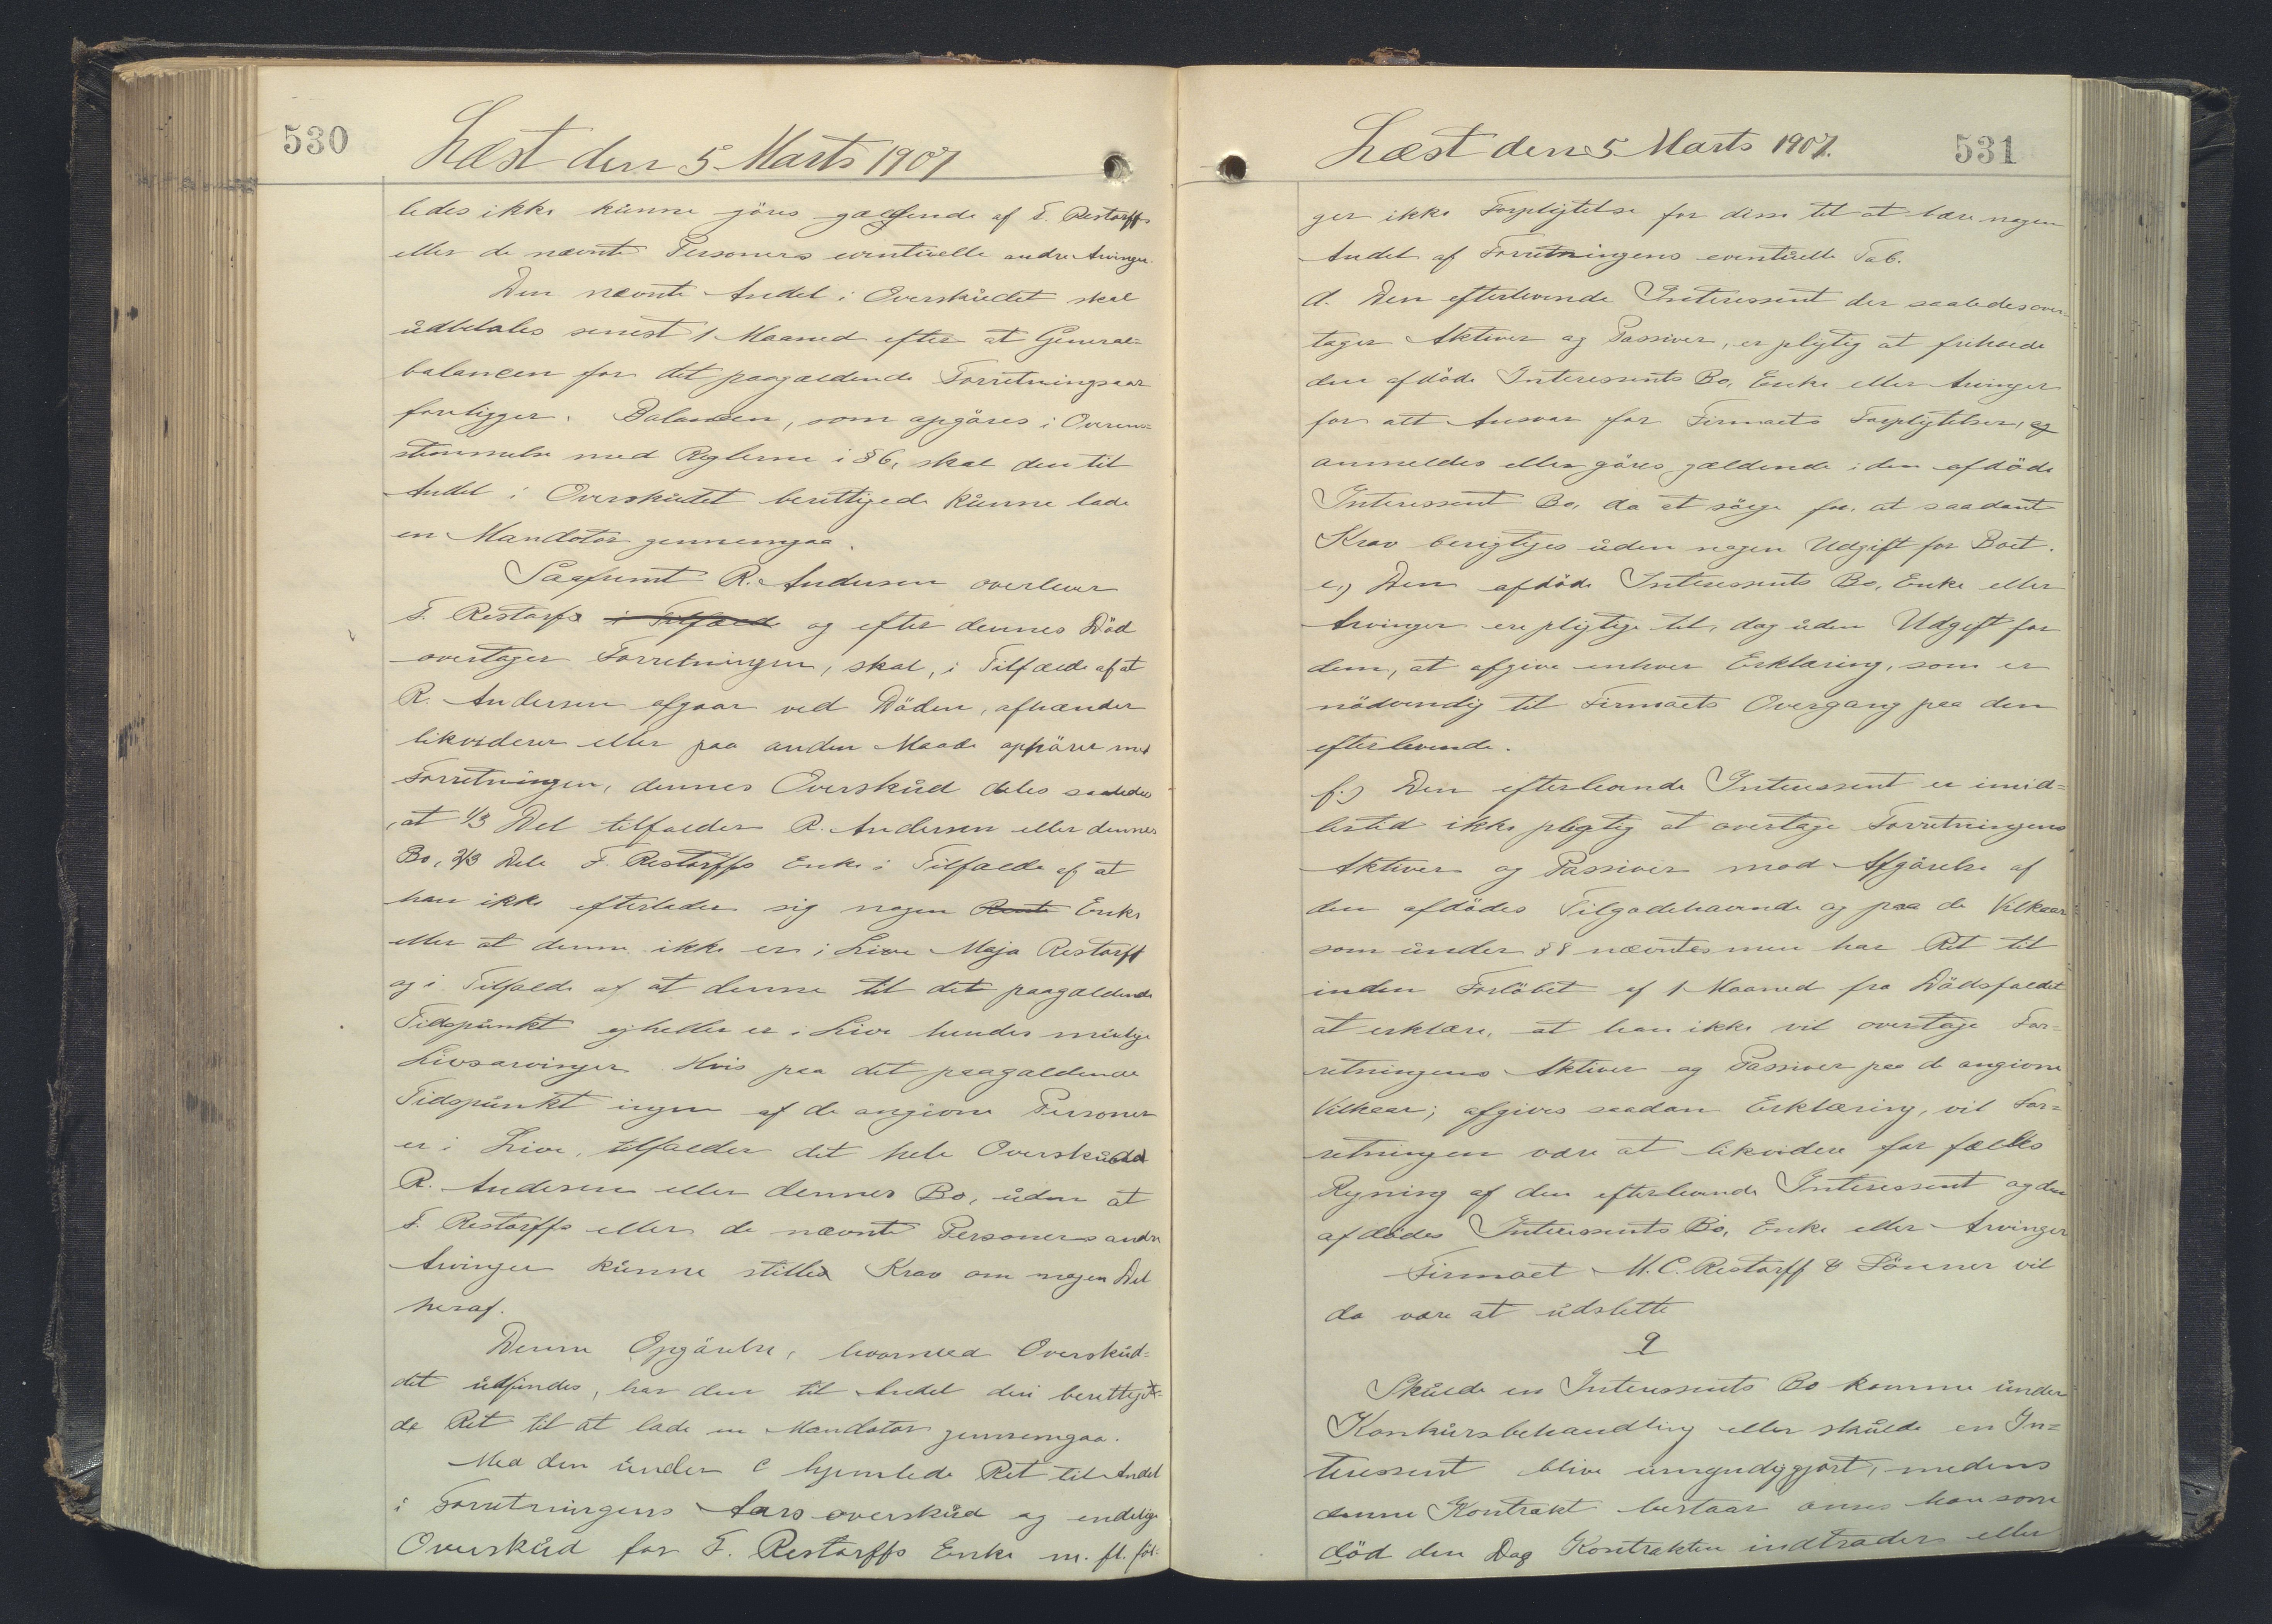 530
Læst den 5 Marts 1907
ledes ikke kunne göres gældende af T. Restorffs
eller de nævnte Personers eventuelle andre Arvinger.
Den nævnte Andel i Overskudet skal
udbetales senest 1 Maaned efter at General-
balancen for det paagældende Forretningsaar
foreligger. Balancen, som opgöres i Overens-
stemmelse med Reglerne i §6, skal den til
Andel i Overskudet berettigede kunne lade
en Mandatar gennemgaa.
Saafremt R. Andersen overlever
T. Restorff i Tilfælde og efter dennes Död
overtager Forretningen, skal, i Tilfælde af at
R. Andersen afgaar ved Döden, afhænder
likviderer eller paa anden Maade ophörer med
Forretningen, dennes Overskud deles saaledes
, at 1/3 Del tilfalder R. Andersen eller dennes
Bo, 2/3 Dele T. Restorffs Enke i Tilfælde af at
han ikke efterlader sig nogen Rente Enke
eller at denne ikke er i Live Maja Restorff
og i Tilfælde af at denne til det paagældende
Tidspunkt ejheller er i Live hendes mulige
Livsarvinger. Hvis paa det paagældende
Tidspunkt ingen af de angivne Personer
er i Live, tilfalder det hele Overskud
R. Andersen eller dennes Bo, uden at
T. Restorffs eller de nævnte Personers andre
Arvinger kunne stille Krav om nogen Del
heraf.
Denne Opgörelse, hvorved Overskud-
det udfindes, har den til Andel deri berettige-
de Ret til at lade en Mandatar gennemgaa.
Med den under c hjemlede Ret til Andel
i Forretningens Aarsoverskud og endelige
Overskud for T. Restorffs Enke m. fl. föl-
Læst den 5 Marts 1907.
531
ger ikke Forpligtelse for disse til at bære nogen
Andel af Forretningens eventuelle Tab.
d. Den efterlevende Interessent der saaledes over-
tager Aktiver og Passiver, er pligtig at friholde
den afdöde Interessents Bo, Enke eller Arvinger
for alt Ansvar for Firmaets Forpligtelser, og
anmeldes eller göres gældende i den afdöde
Interessent Bo, da at sörge for, at saadant
Krav berigtiges uden nogen Udgift for Boet.
e.) Den afdöde Interessents Bo, Enke eller
Arvinger ere pligtige til, dog uden Udgift for
dem, at afgive enhver Erklæring, som er
nödvendig til Firmaets Overgang paa den
efterlevende.
f.) Den efterlevende Interessent er imid-
lertid ikke pligtig at overtage Forretningens
Aktiver og Passiver mod Afgörelse af
den afdödes Tilgodehavende og paa de Vilkaar
som under §8 nævntes men har Ret til
inden Forlöbet af 1 Maaned fra Dödsfaldet
at erklære, at han ikke vil overtage For-
retningens Aktiver og Passiver paa de angivne
Vilkaar; afgives saadan Erklæring, vil For-
retningen være at likvidere for fælles
Regning af den efterlevende Interessent og den
afdödes Interessents Bo, Enke eller Arvinger
Firmaet M. C. Restorff & Sönner vil
da være at udslette
9
Skulde en Interessents Bo komme under
Konkursbehandling eller skulde en In-
teressent blive umyndiggjort, medens
denne Kontrakt bestaar anses han som
död den Dag Kontrakten indtræder eller